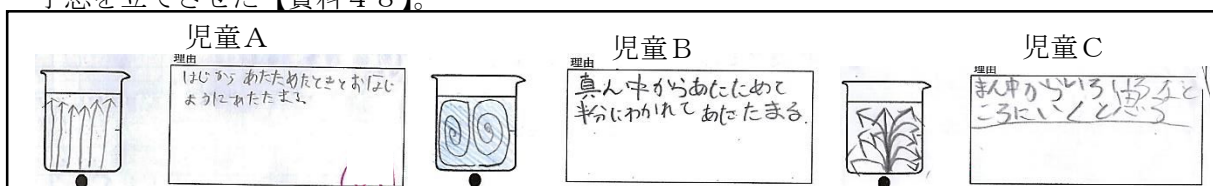 予想を立てさせた【資料48】。
児童A
理由
はじから あたためたときとおなじ
ようにあたたまる
児童B
理由
真ん中からあたためて
半分にわかれて あたたまる.
児童C
理由
まん中からいろいろなと
ころにいくと思う